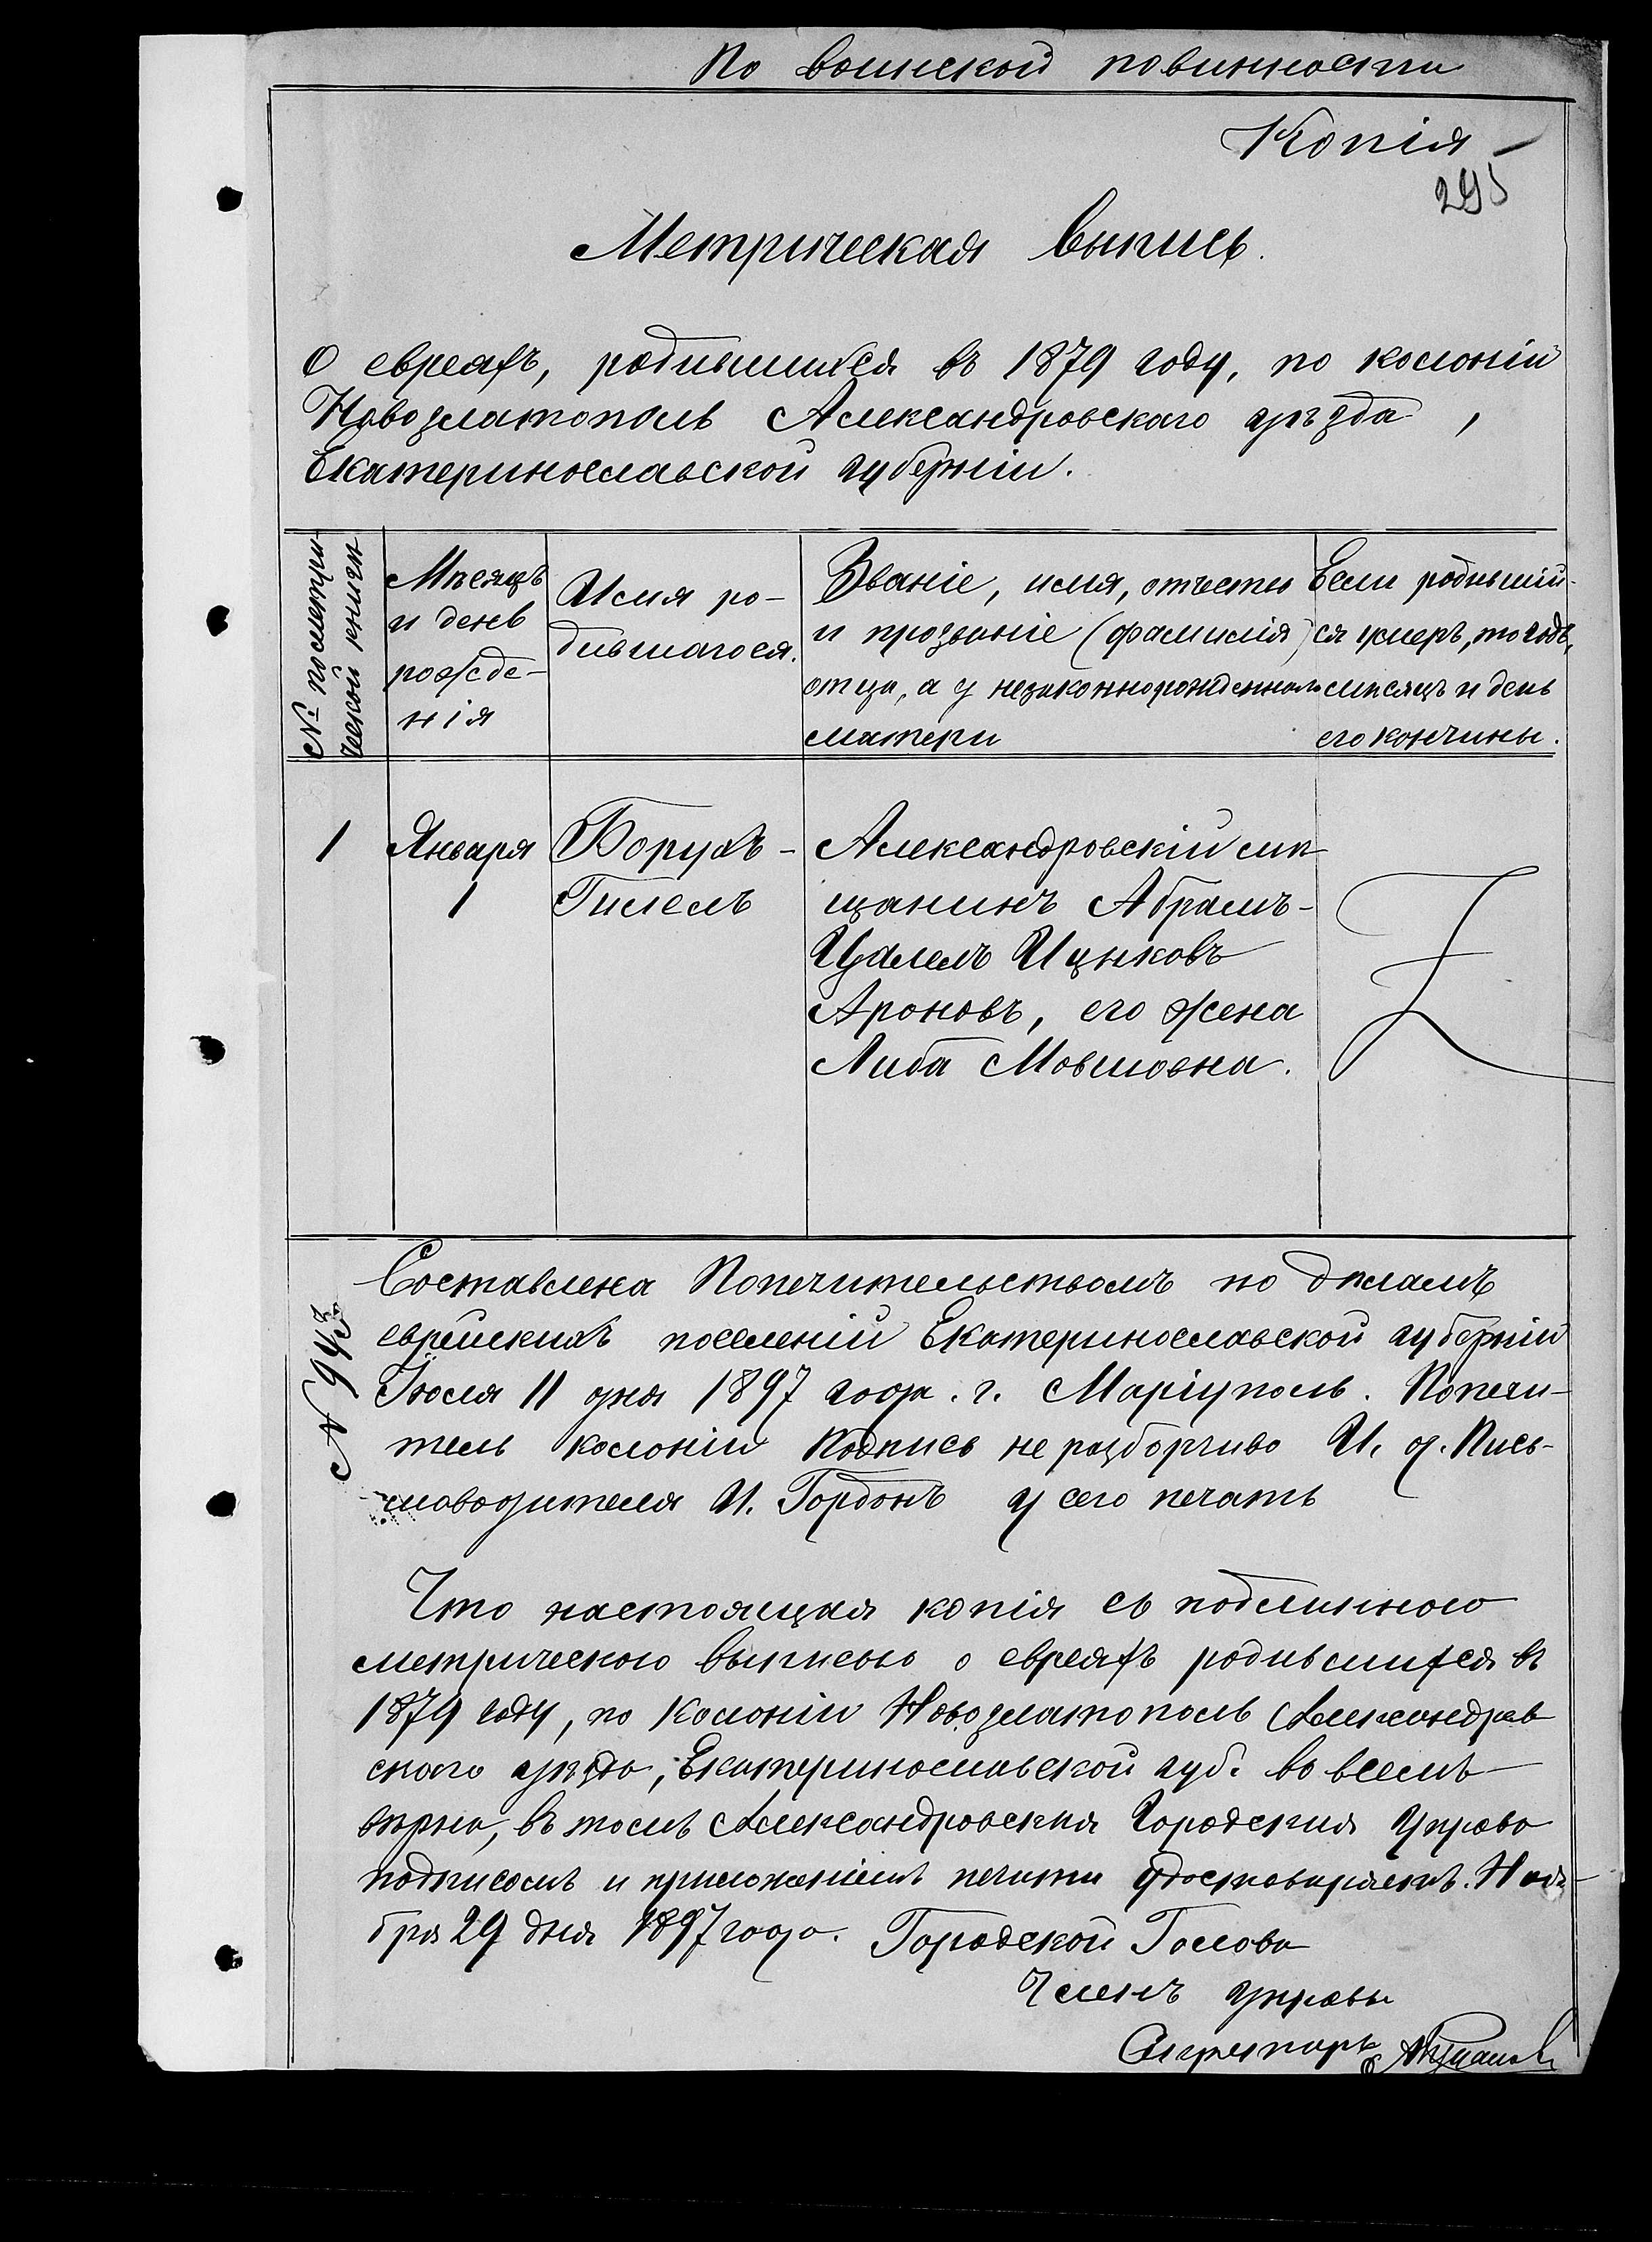 По воинской повинности
Копія
295
Метрическая выпись.
О евреяхъ, родившихся въ 1879 году, по колоніи
Новозлатополь Александровскаго уѣзда,
Екатеринославской губерніи.
№ по метри-
ческой книгѣ
Мѣсяцъ
и день
рожде-
нія
Имя ро-
дившагося.
Званіе, имя, отчество
и прозваніе (фамилія)
отца, а у незаконнорожденнаго
матери
Если родившій-
ся умеръ, то годъ,
мѣсяцъ и день
его кончины.
1
Января
1
Борухъ-
Гилель
Александровскій мѣ-
щанинъ Абрамъ-
Цалель Ицковъ
Ароновъ, его жена
Либа Мовшовна.
№ 943
Составлена Попечительствомъ по дѣламъ
еврейскихъ поселеній Екатеринославской губерніи
Іюля 11 дня 1897 года. г. Маріуполь. Попечи-
тель колоніи Подпись не разборчиво И. д. Пись-
моводителя И. Гордонъ у сего печать
Что настоящая копія съ подлинною
метрическою выписью о евреяхъ родившихся въ
1879 году, по колоніи Новозлатополь Александров
скаго уѣзда, Екатеринославской губ. во всемъ
вѣрна, въ томъ Александровская Городская Управа
подписомъ и приложеніемъ печати удостовѣряетъ. Ноя-
бря 29 дня 1897 года. Городской Голова
Членъ управы
Секретарь